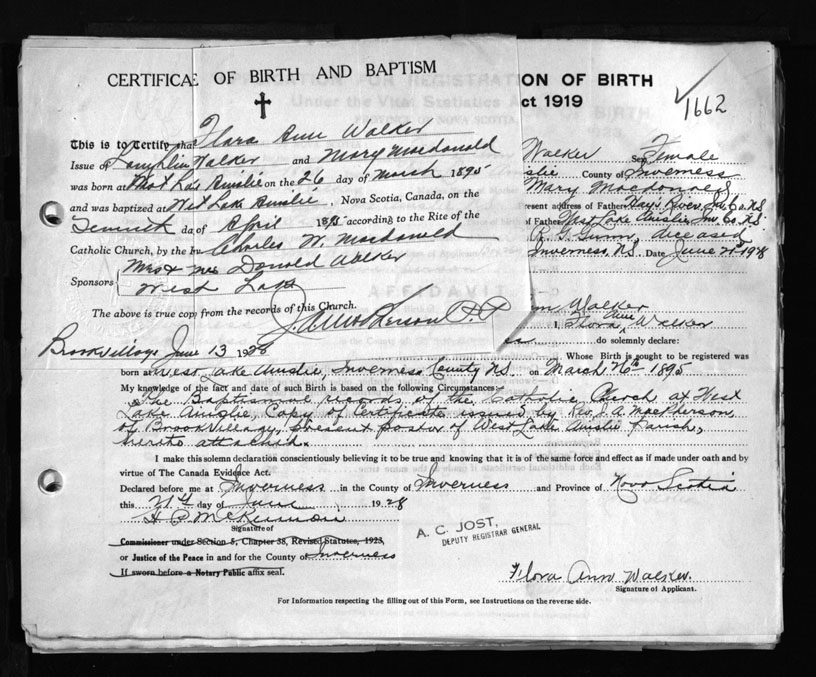 CERTIFICA OF BIRTH AND BAPTISM
This is to Certify that Flora Ann Walker
Issue of Lauchlin Walker and Mary Macdonald
was born at West Lake Ainslie on the 26 day of March 1895
and was baptized at West Lake Ainslie, Nova Scotia, Canada, on the
day of April 1895 according to the Rite of the
Catholic Church, by the Charles W. Macdonald
Sponsors Mr & Mrs Donald Walker
West Lake
The above is true copy from the records of this Church.
J. A. MacPherson P.P.
Brook Village June 13 1928
ON OF BIRTH
ct 1919
1662
Walker Sex Female
slie County of Inverness
Mary Macdonald
resent address of Father Hay's River, Inv. Co. N.S.
of Father West Lake Ainslie Inv. Co. N.S.
deceased
Inverness, N.S. Date June 21st 1928
AFFIDAVIT
nn Walker
I, Flora Ann Walker
do solemnly declare:
Whose Birth is sought to be registered was
born at West Lake Ainslie, Inverness County N.S. on March 26th 1895
My knowledge of the fact and date of such Birth is based on the following Circumstances:
The Baptismal records of the Catholic Church at West
Lake Ainslie, Copy of Certificate issued by Rev. J. A. MacPherson,
of Brook Village, present pastor of West Lake Ainslie Parish,
hereto attached.
I make this solemn declaration conscientiously believing it to be true and knowing that it is of the same force and effect as if made under oath and by
virtue of The Canada Evidence Act.
Declared before me at Inverness in the County of Inverness and Province of Nova Scotia
this 21st day of June 1928
Signature of
Commissioner under Section 5, Chapter 38, Revised Statutes, 1923,
or Justice of the Peace in and for the County of Inverness
If sworn before a Notary Public affix seal.
A. C. JOST,
DEPUTY REGISTRAR GENERAL
Flora Ann Walker.
Signature of Applicant.
For Information respecting the filling out of this Form, see Instructions on the reverse side.